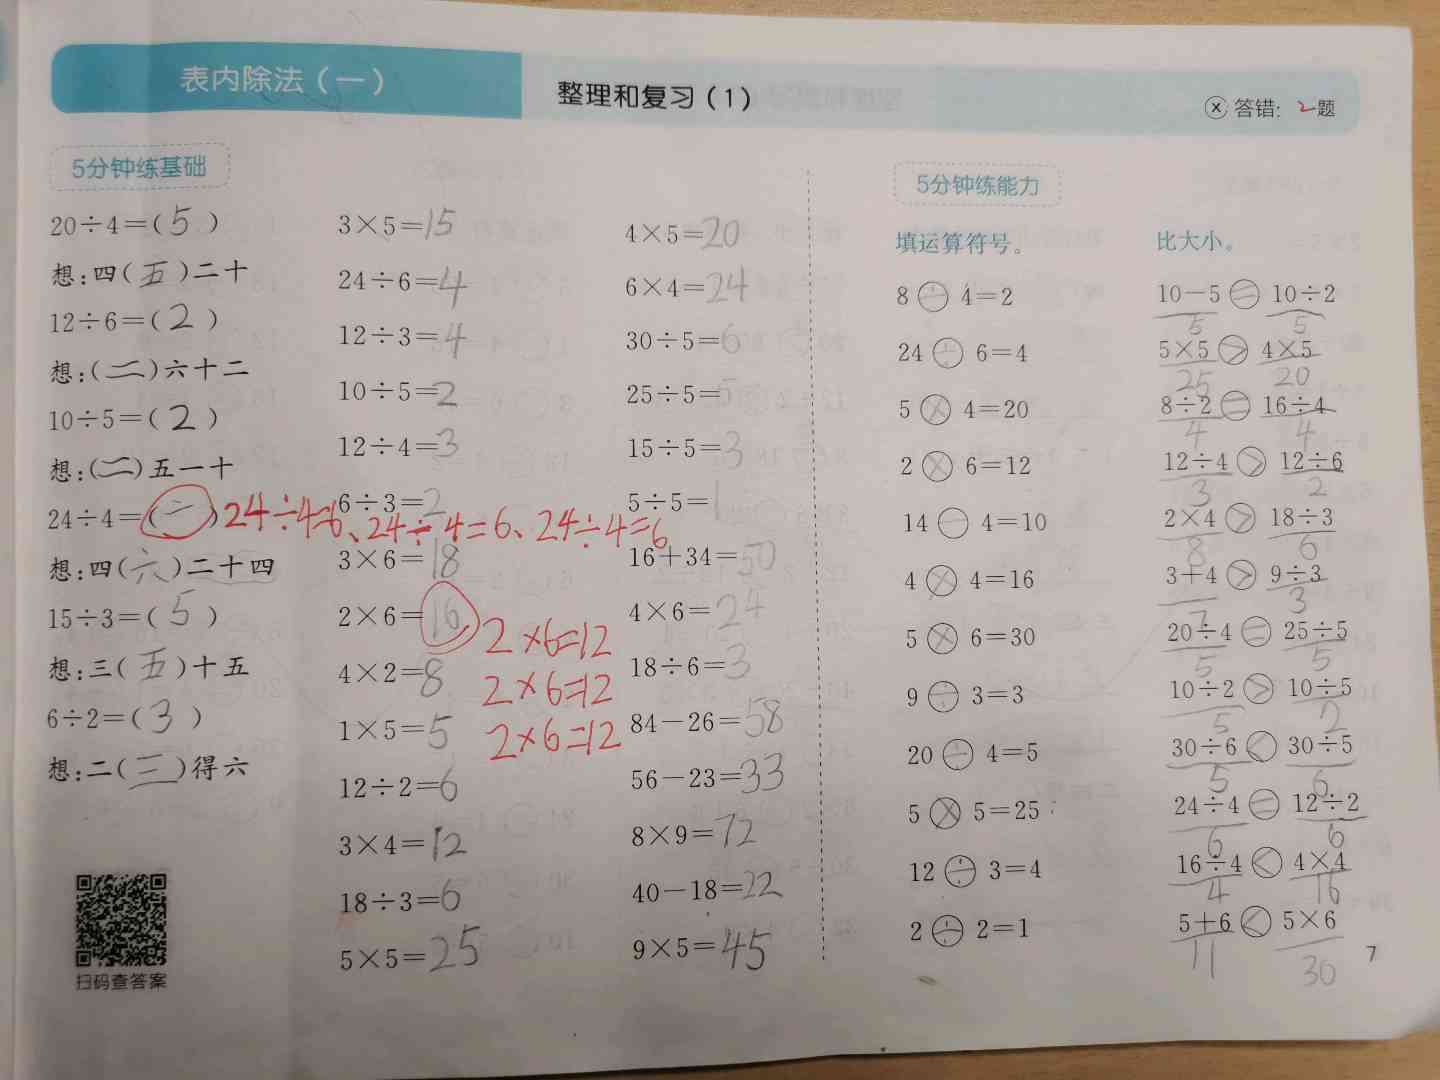 表内除法（一）
整理和复习（1）
ⓧ 答错: 2题
5分钟练基础
20÷4=(5)
想:四(五)二十
12÷6=(2)
想:(二)六十二
10÷5=(2)
想:(二)五一十
24÷4=(二) 24÷4=6、24÷4=6、24÷4=6
想:四(六)二十四
15÷3=(5)
想:三(五)十五
6÷2=(3)
想:二(三)得六
扫码查答案
3×5=15
24÷6=4
12÷3=4
10÷5=2
12÷4=3
6÷3=2
3×6=18
2×6=16
2×6=12
2×6=12
2×6=12
4×2=8
1×5=5
12÷2=6
3×4=12
18÷3=6
5×5=25
4×5=20
6×4=24
30÷5=6
25÷5=5
15÷5=3
5÷5=1
16+34=50
4×6=24
18÷6=3
84-26=58
56-23=33
8×9=72
40-18=22
9×5=45
5分钟练能力
填运算符号。
8÷4=2
24÷6=4
5×4=20
2×6=12
14-4=10
4×4=16
5×6=30
9÷3=3
20÷4=5
5×5=25
12÷3=4
2÷2=1
比大小。
10-5=10÷2
5 5
5×5>4×5
25 20
8÷2=16÷4
4 4
12÷4>12÷6
3 2
2×4>18÷3
8 6
3+4>9÷3
7 3
20÷4=25÷5
5 5
10÷2>10÷5
5 2
30÷6<30÷5
5 6
24÷4=12÷2
6 6
16÷4<4×4
4 16
5+6<5×6
11 30
7